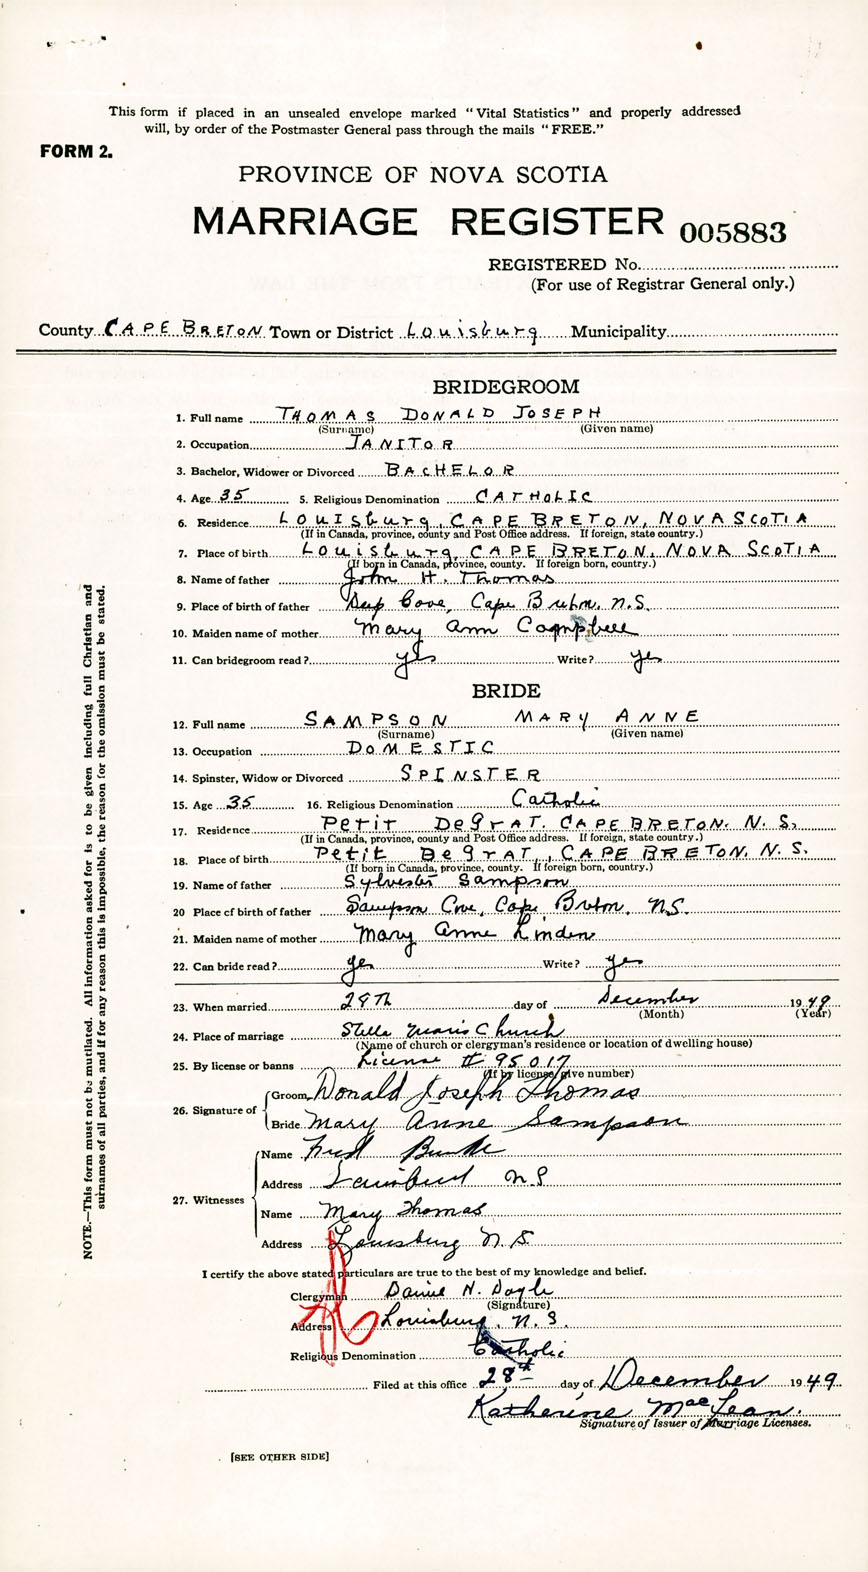 This form if placed in an unsealed envelope marked "Vital Statistics" and properly addressed
will, by order of the Postmaster General pass through the mails "FREE."
FORM 2.
PROVINCE OF NOVA SCOTIA
MARRIAGE REGISTER 005883
REGISTERED No.
(For use of Registrar General only.)
County CAPE BRETON Town or District Louisburg Municipality
BRIDEGROOM
1. Full name THOMAS DONALD JOSEPH
(Surname) (Given name)
2. Occupation JANITOR
3. Bachelor, Widower or Divorced BACHELOR
4. Age 35 5. Religious Denomination CATHOLIC
6. Residence LOUISburg, CAPE BRETON, NOVA SCOTIA
(If in Canada, province, county and Post Office address. If foreign, state country.)
7. Place of birth Louisburg, CAPE BRETON, NOVA SCOTIA
(If born in Canada, province, county. If foreign born, country.)
8. Name of father John H. Thomas
9. Place of birth of father Deep Cove, Cape Breton, N.S.
10. Maiden name of mother Mary Ann Campbell
11. Can bridegroom read? yes Write? yes
BRIDE
12. Full name SAMPSON MARY ANNE
(Surname) (Given name)
13. Occupation DOMESTIC
14. Spinster, Widow or Divorced SPINSTER
15. Age 35 16. Religious Denomination Catholic
17. Residence Petit DeGrat, CAPE BRETON. N. S.
(If in Canada, province, county and Post Office address. If foreign, state country.)
18. Place of birth Petit DeGrat, CAPE BRETON, N. S.
(If born in Canada, province, county. If foreign born, country.)
19. Name of father Sylvester Sampson
20 Place of birth of father Sampson Cove, Cape Breton, N.S.
21. Maiden name of mother Mary Anne Linden
22. Can bride read? yes Write? yes
23. When married 28Th day of December 1949
(Month) (Year)
24. Place of marriage Stella Maris Church
(Name of church or clergyman's residence or location of dwelling house)
25. By license or banns License # 95017
(If by license, give number)
26. Signature of Groom Donald Joseph Thomas
Bride Mary Anne Sampson
27. Witnesses
Name Fred
Address N S
Name Mary Thomas
Address Louisburg N. S.
I certify the above stated particulars are true to the best of my knowledge and belief.
Clergyman Daniel N. Doyle
(Signature)
Address Louisburg, N. S.
Religious Denomination Catholic
Filed at this office 28th day of December 1949
Katherine MacLean.
Signature of Issuer of Marriage Licenses.
[SEE OTHER SIDE]
NOTE.—This form must not be mutilated. All information asked for is to be given including full Christian and
surnames of all parties, and if for any reason this is impossible, the reason for the omission must be stated.